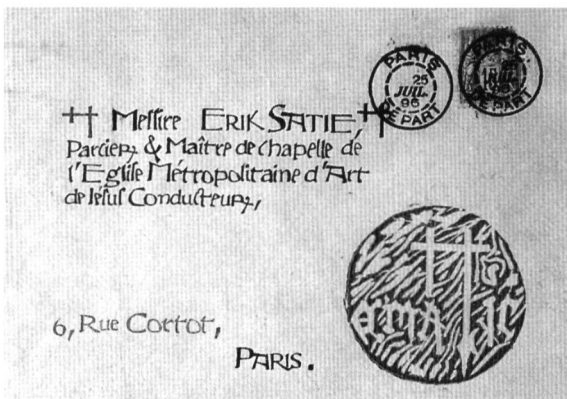 PARIS
25
JUIL.
96
DEPART
PARIS
DEPART
†† Messire ERIK SATIE, ††
Parcier, & Maître de chapelle de
l'Eglise Métropolitaine d'Art
de Jésus Conducteur,
6, Rue Cortot,
PARIS.